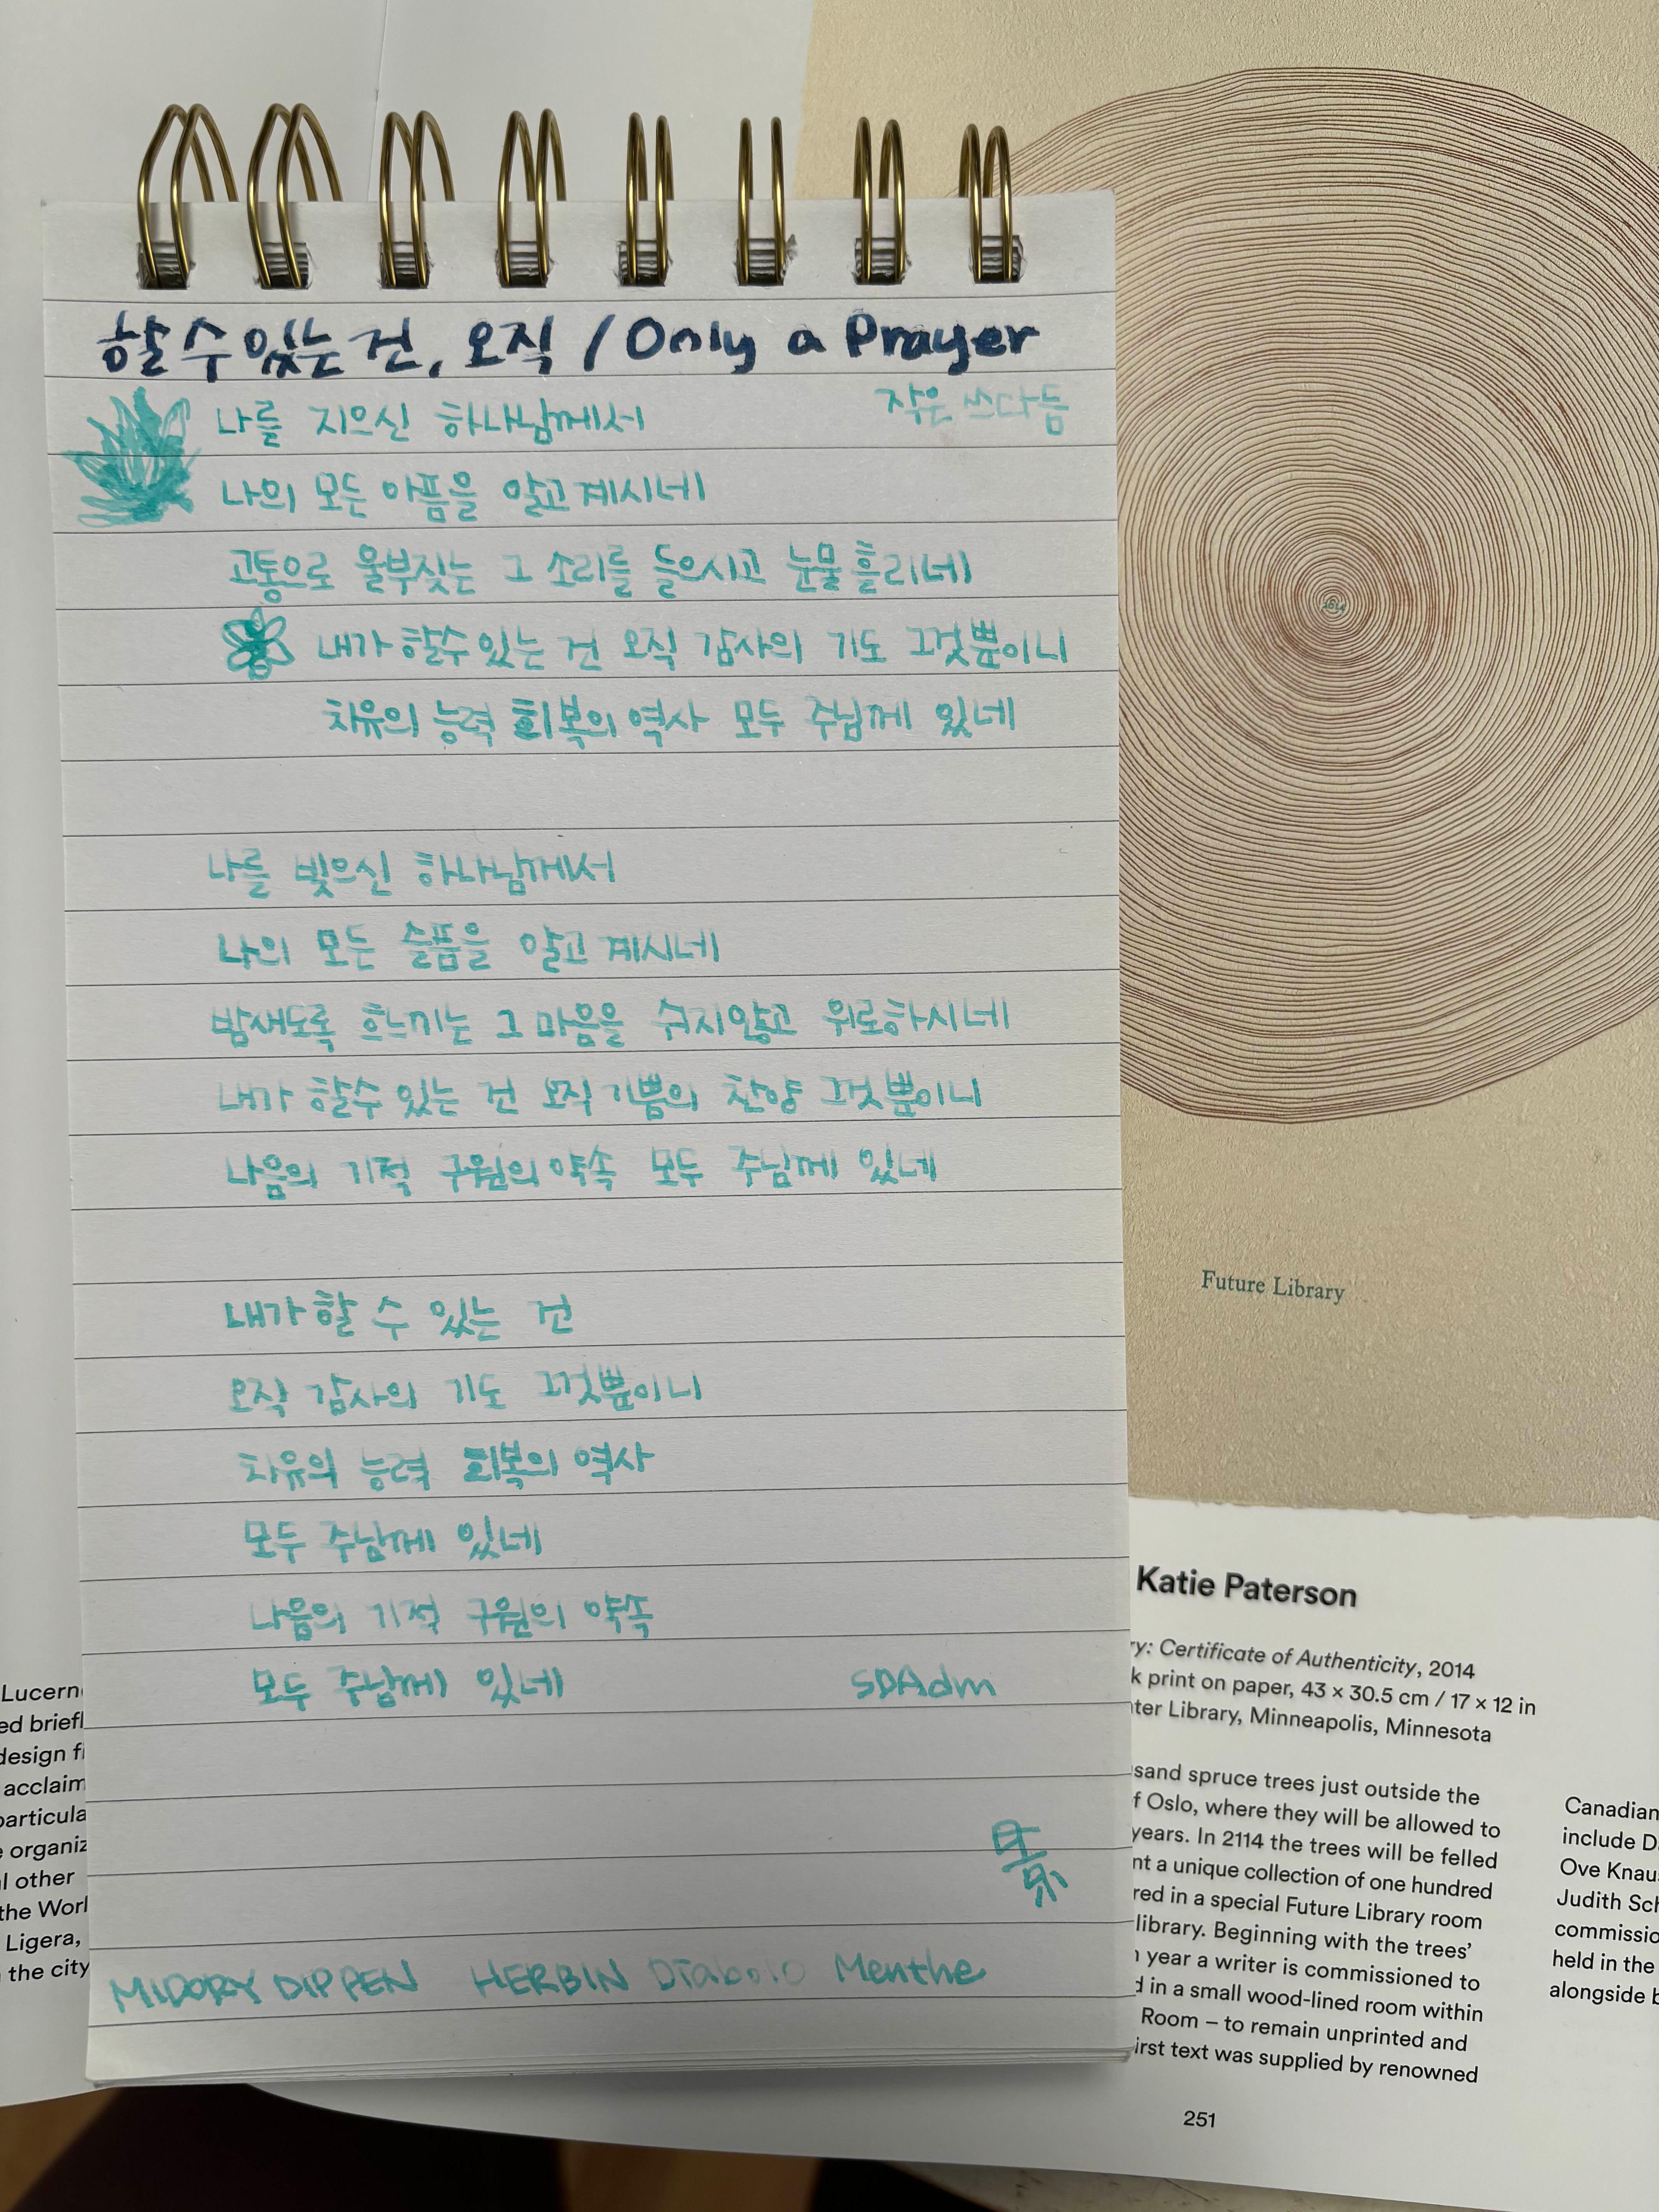 할 수 있는 건, 오직 / Only a Prayer
작은 쓰다듬
나를 지으신 하나님께서
나의 모든 아픔을 알고 계시네
고통으로 울부짖는 그 소리를 들으시고 눈물 흘리네
내가 할수 있는 건 오직 감사의 기도 그것뿐이니
치유의 능력 회복의 역사 모두 주님께 있네
나를 빚으신 하나님께서
나의 모든 슬픔을 알고 계시네
밤새도록 흐느끼는 그 마음을 쉬지않고 위로하시네
내가 할수 있는 건 오직 기쁨의 찬양 그것뿐이니
나음의 기적 구원의 약속 모두 주님께 있네
내가 할 수 있는 건
오직 감사의 기도 그것뿐이니
치유의 능력 회복의 역사
모두 주님께 있네
나음의 기적 구원의 약속
모두 주님께 있네
SDAdm
MIDORY DIP PEN HERBIN Diabolo Menthe
Future Library
Katie Paterson
Certificate of Authenticity, 2014
print on paper, 43 × 30.5 cm / 17 × 12 in
Library, Minneapolis, Minnesota
spruce trees just outside the
Oslo, where they will be allowed to
years. In 2114 the trees will be felled
a unique collection of one hundred
in a special Future Library room
library. Beginning with the trees’
year a writer is commissioned to
in a small wood-lined room within
Room – to remain unprinted and
text was supplied by renowned
Canadian
include
Ove
Judith
held in the
alongside
251
design
acclaim
other
the
Ligera,
the city